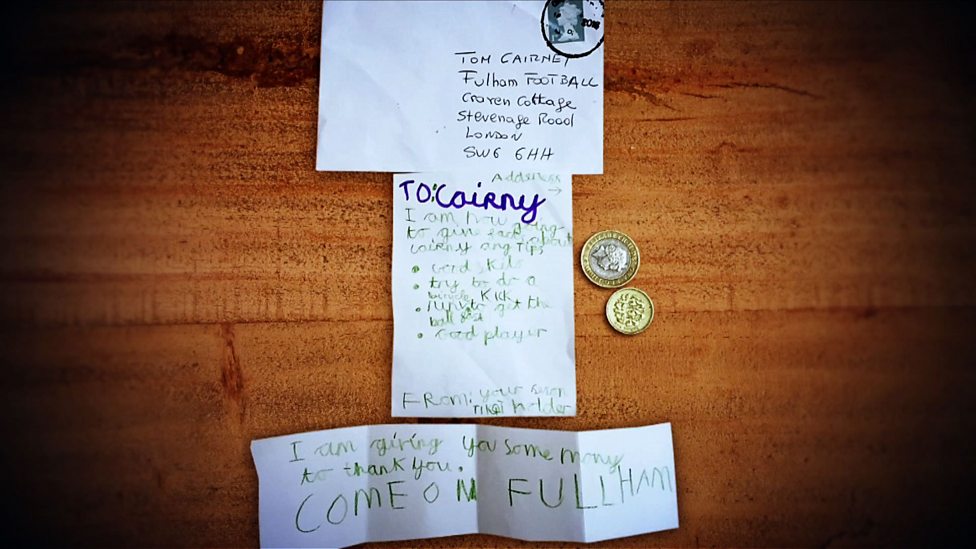 2016
TOM CAIRNEY
Fulham FOOTBALL
Craven Cottage
Stevenage Road
LONDON
SW6 6HH
Address
→
TO: Cairny
I am now going
to give facts about
Cairny and TIPS
• Good skils
• try to do a
bicycle KICK
• run to get the
ball
• Good player
FROM: your seson
ticket holder
I am giving you some mony
to thank you.
COME ON FULLHAM